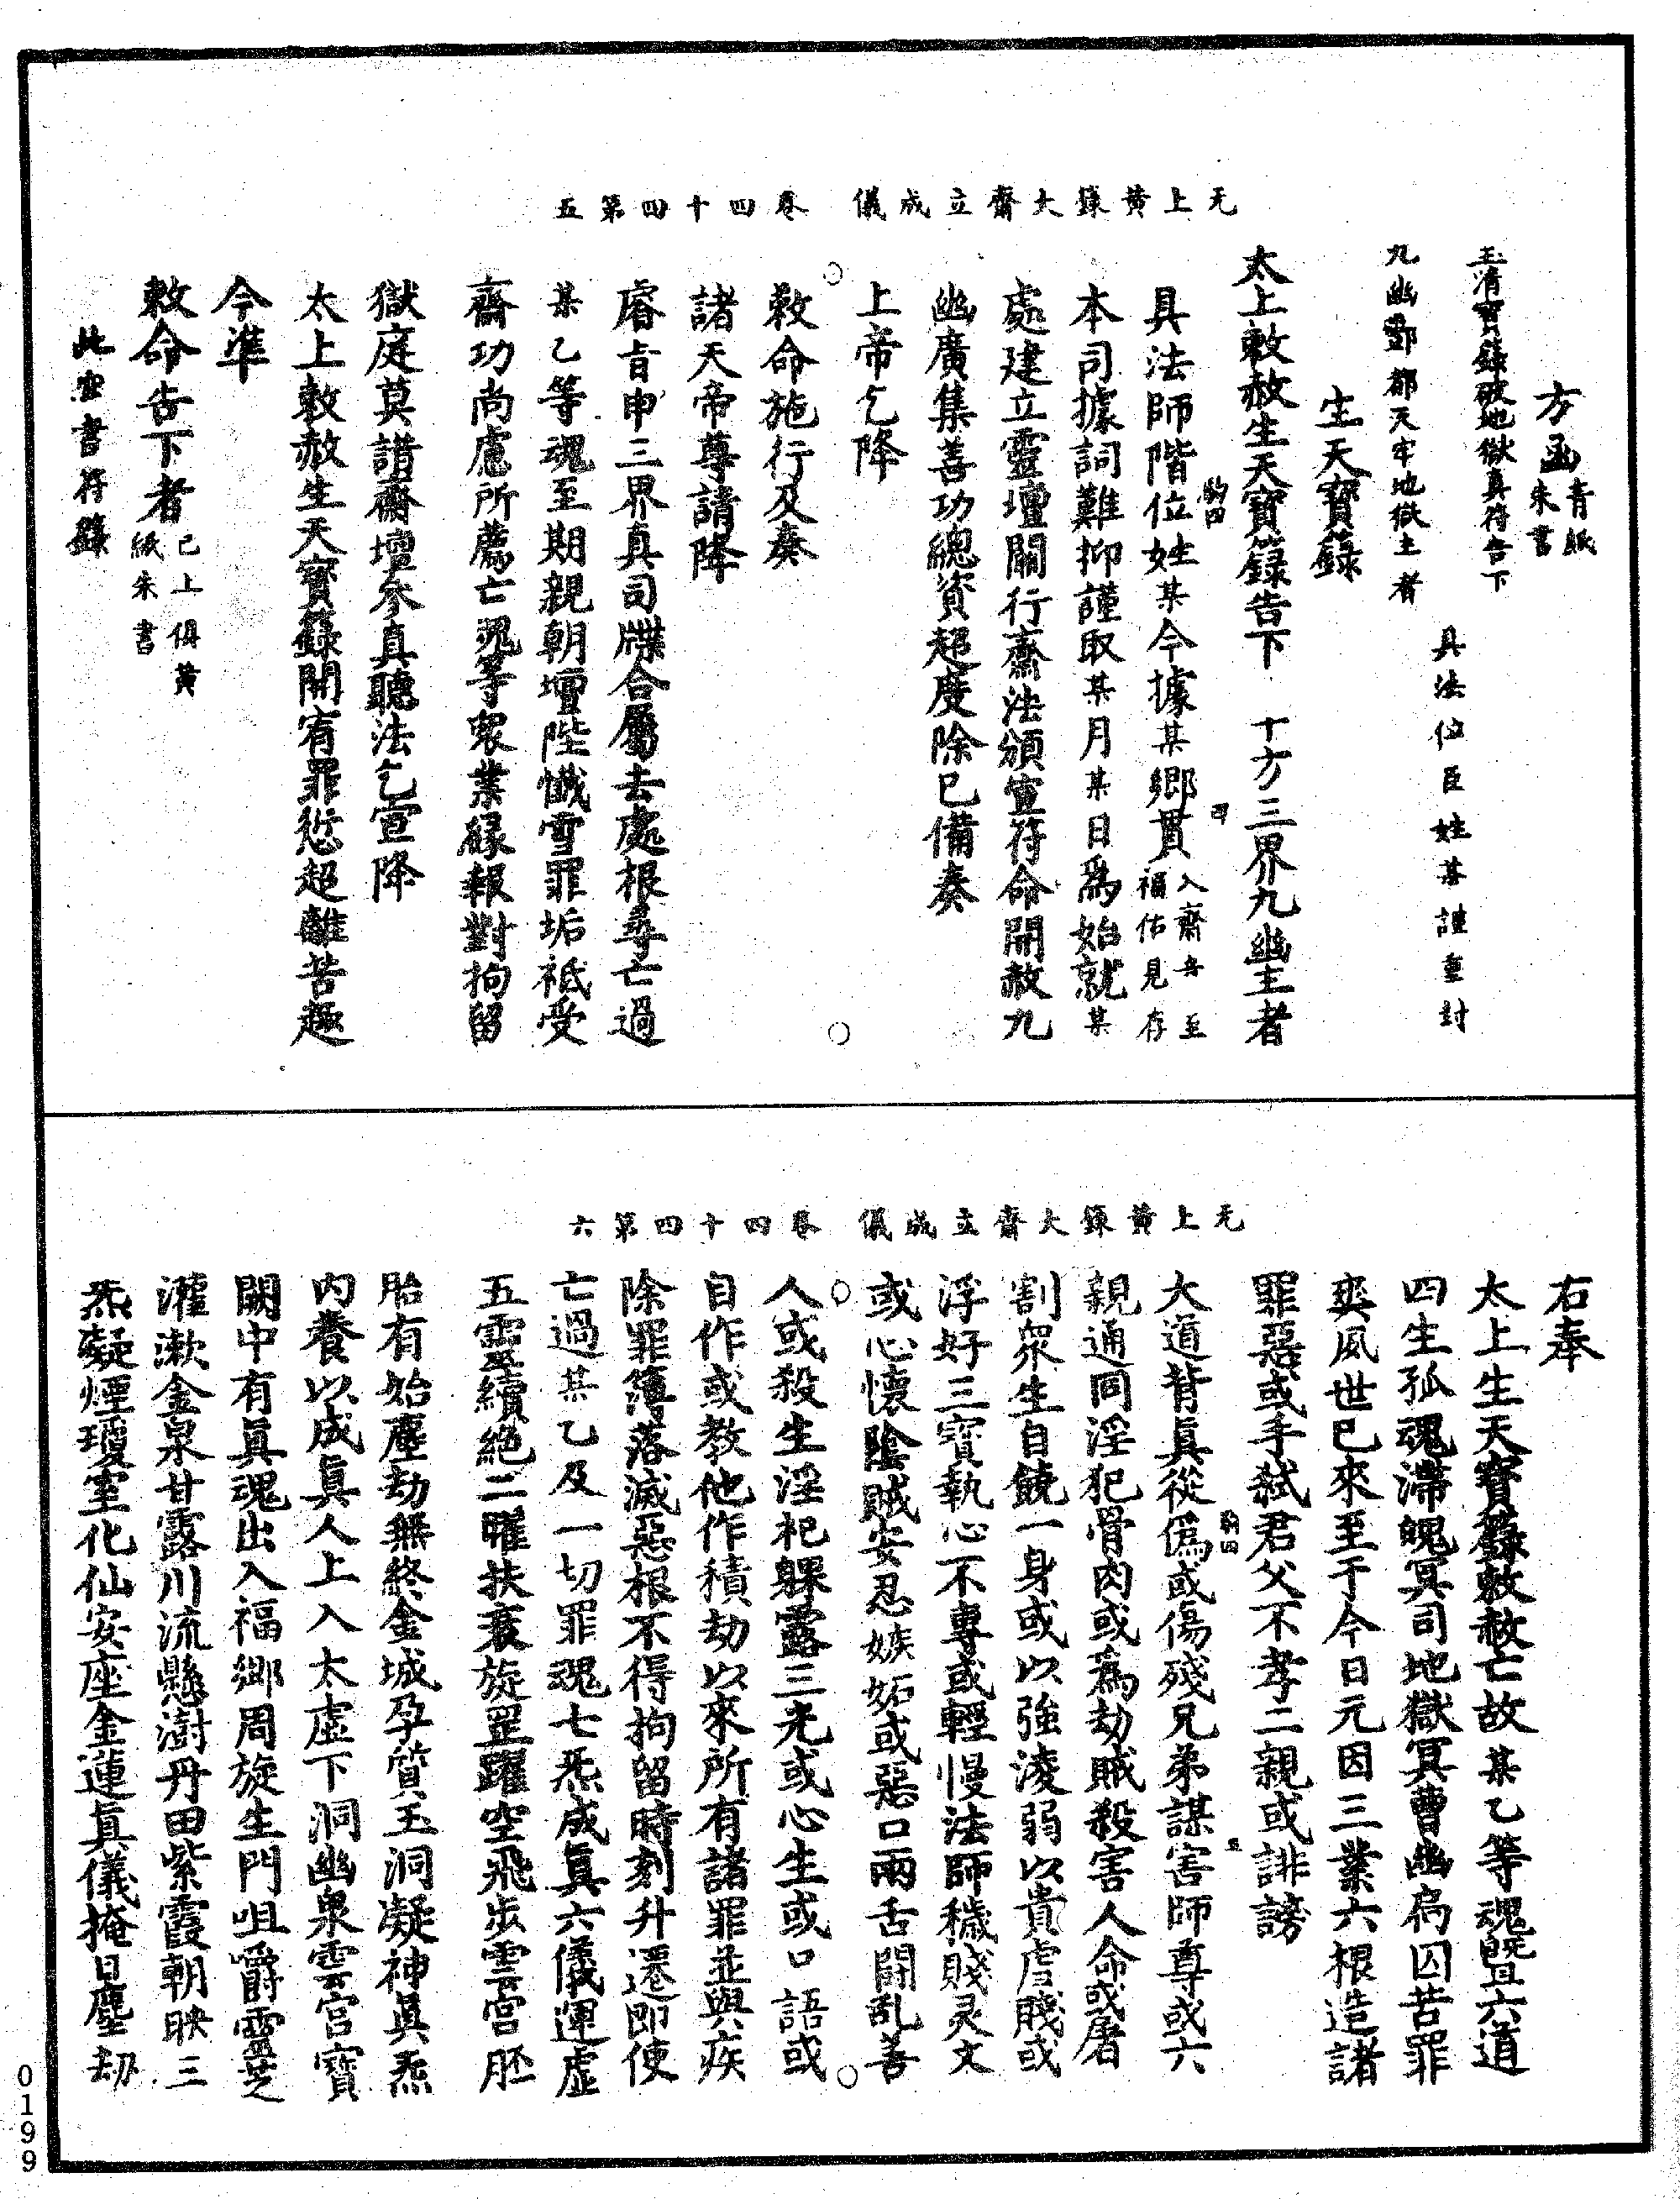 无上黃籙大齋立成儀　卷四十四第五
方函青紙朱書
玉清寶籙破地獄真符告下
具法位臣姓某謹重封
九幽酆都天牢地獄主者
生天寶籙
太上敕赦生天寶籙告下　十方三界九幽主者
具法師階位姓某今據某鄉貫入齋意至福佑見存
本司據詞難抑謹取某月某日爲始就某
處建立靈壇關行齋法頒宣符命開赦九
幽廣集善功總資超度除已備奏
上帝乞降
敕命施行及奏
諸天帝尊請降
睿旨申三界真司牒合屬去處根尋亡過
某乙等魂至期親朝壇陛懺雪罪垢祗受
齋功尚慮所薦亡䰟等衆業緣報對拘留
獄庭莫詣齋壇參真聽法乞宣降
太上敕赦生天寶籙開宥罪愆超離苦趣
今準
敕命告下者已上俱黃紙朱書
此空書符籙
无上黃籙大齋立成儀　卷四十四第六
右奉
太上生天寶籙敕赦亡故某乙等魂曁六道
四生孤魂滯魄冥司地獄冥曹幽扃囚苦罪
爽夙世已來至于今日元因三業六根造諸
罪惡或手弑君父不孝二親或誹謗
大道背眞從僞或傷殘兄弟謀害師尊或六
親通同淫犯骨肉或爲劫賊殺害人命或屠
割衆生自饒一身或以強淩弱以貴虐賤或
浮好三寶執心不專或輕慢法師穢賤灵文
或心懷陰賊安忍嫉妬或惡口兩舌鬭乱善
人或殺生淫祀躶露三光或心生或口語或
自作或教他作積劫以來所有諸罪並與疾
除罪簿落滅惡根不得拘留時刻升遷即使
亡過某乙及一切罪魂七炁成眞六儀運虛
五靈續絕二曜扶衰旋罡躍空飛步雲宮胚
胎有始塵劫無終金城孕質玉洞凝神眞炁
内養以成眞人上入太虛下洞幽泉雲宮寶
闕中有眞魂出入福鄉周旋生門咀嚼靈芝
灌漱金泉甘露川流懸澍丹田紫霞朝映三
炁凝煙瓊室化仙安座金蓮眞儀掩日塵劫
0199